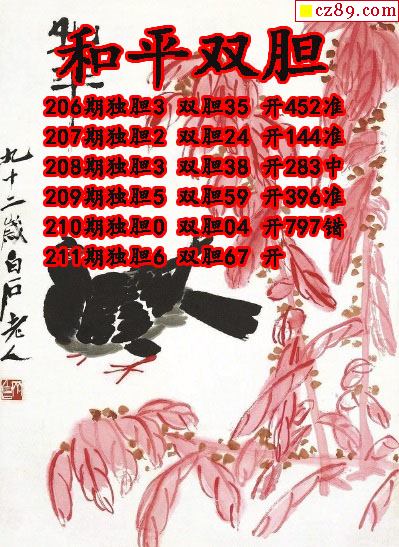 cz89.com
和平双胆
206期独胆3 双胆35 开452准
207期独胆2 双胆24 开144准
208期独胆3 双胆38 开283中
209期独胆5 双胆59 开396准
210期独胆0 双胆04 开797错
211期独胆6 双胆67 开
九十二岁白石老人